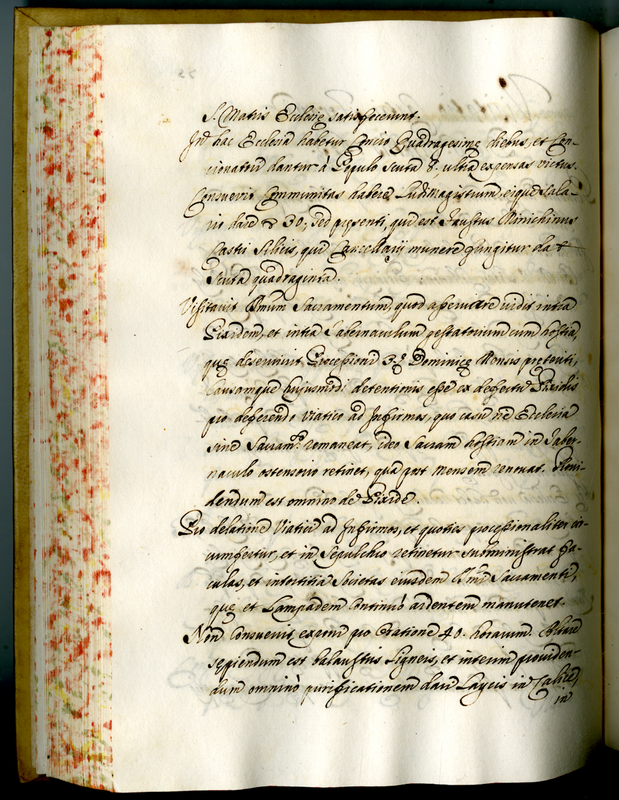 S. Matris Ecclesię satisfecerunt.
In hac Ecclesia habetur Concio Quadragesimę diebus, et Con-
cionatori dantur à Populo scuta 8. ultra expensas victus.
Consuevit Communitas habere Ludimagistrum, eique Sala-
rio dare 30; sed presenti, qui est Faustus Minichinus
Castri Silicis, qui Cancellarij munere fungitur dat
scuta quadraginta.
Visitavit Smum Sacramentum, quod asservare vidit intra
Pixidem, et intra Tabernaculum gestatorium cum hostia,
quę deservivit Processioni 3.ę Dominicę Mensis pręteriti,
Causamque hujusmodi detentionis esse ex defectu Pixidis
pro deferendo Viatico ad Infirmos, quo casu ne Ecclesia
sine Sacramto remaneat, ideo Sacram hostiam in Taber-
naculo ostensorio retinet, qua post mensem renovat. Provi-
dendum est omnino de Pixide.
Pro delatione Viatici ad Infirmos, et quoties processionaliter cir-
cumfertur, et in Sepulchro retinetur subministrat fa-
culas, et intortitia Societas eiusdem Smi Sacramenti,
quę et Lampadem continuò ardentem manutenet.
Non consuevit exponi pro Oratione 40. horarum. Altare
sepiendum est balaustris ligneis, et interim providen-
dum omninò purificationem dari Laycis in Calice,
in